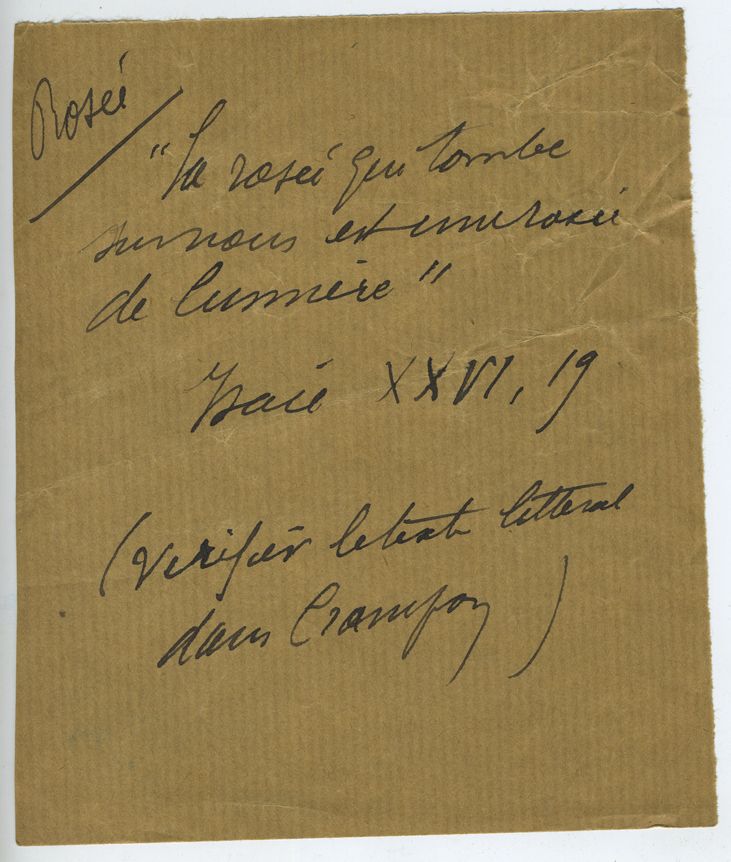 Rosée
"La rosée qui tombe
sur nous est une rosée
de lumière"
Isaïe XXVI, 19
(verifier le texte litteral
dans Crampon)